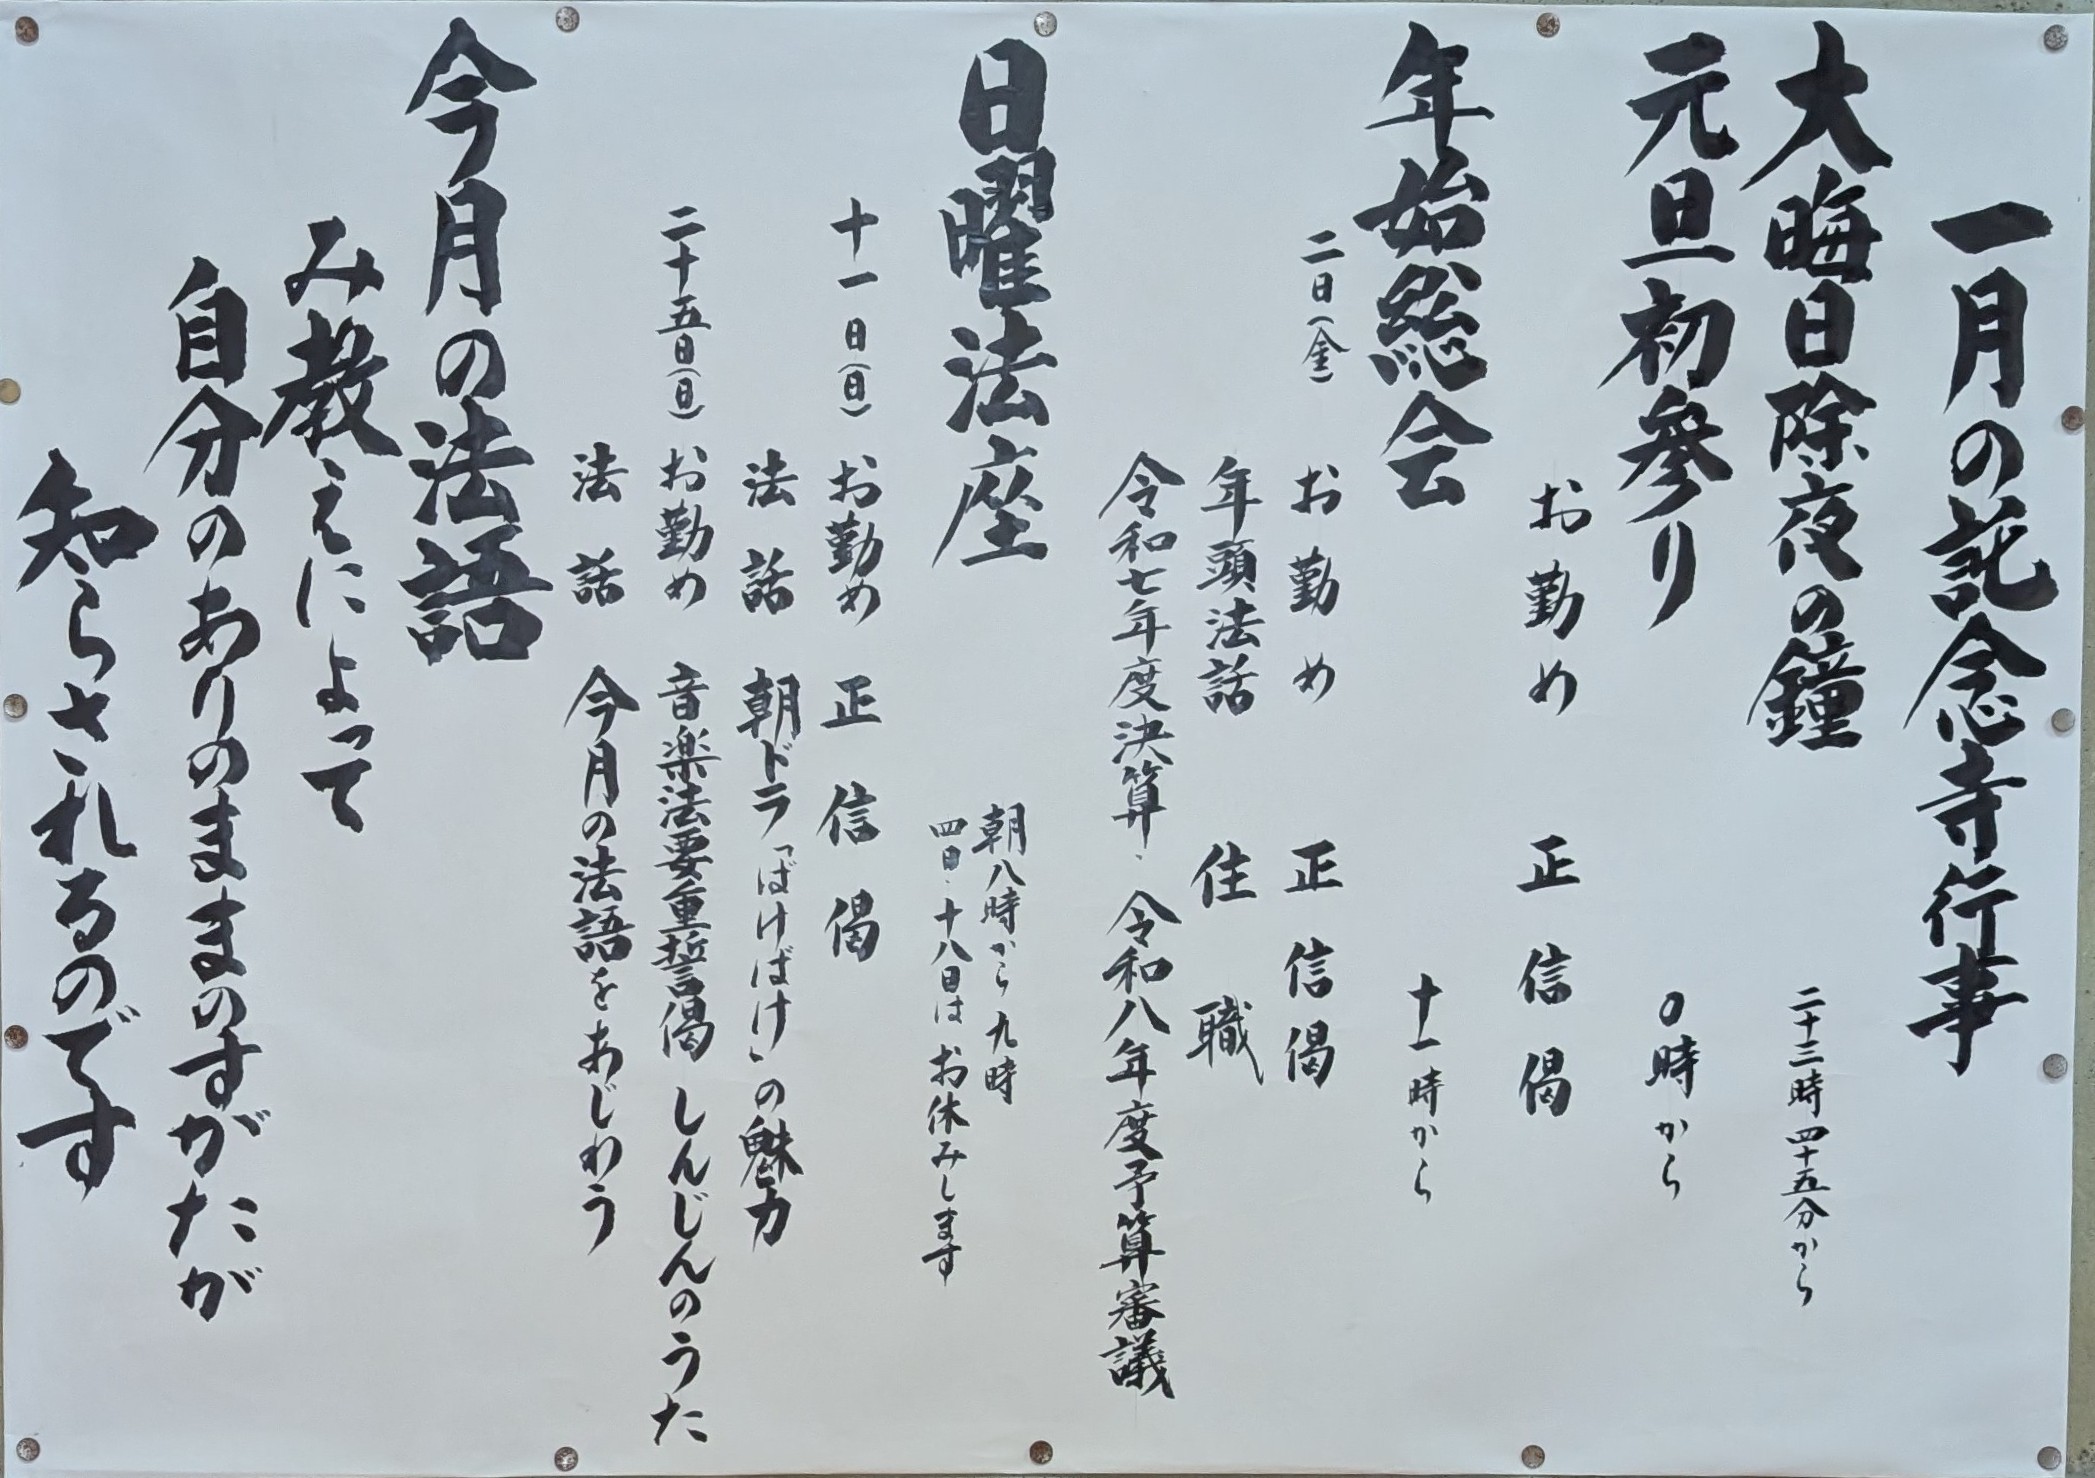 一月の託念寺行事
大晦日除夜の鐘 二十三時四十五分から
元旦初参り 0時から
お勤め 正信偈
年始総会 十一時から
二日(金) お勤め 正信偈
年頭法話 住職
令和七年度決算、令和八年度予算審議
日曜法座 朝八時から九時
四日、十八日はお休みします
十一日(日) お勤め 正信偈
法話 朝ドラ「ばけばけ」の魅力
二十五日(日) お勤め 音楽法要重誓偈 しんじんのうた
法話 今月の法語をあじわう
今月の法語
み教えによって
自分のありのままのすがたが
知らされるのです